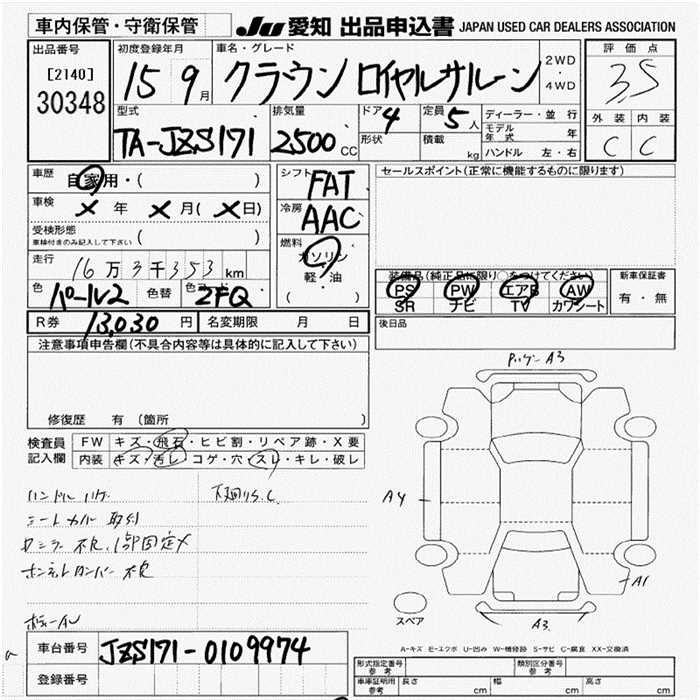 車内保管・守衛保管
JU 愛知 出品申込書 JAPAN USED CAR DEALERS ASSOCIATION
出品番号
[2140]
30348
初度登録年月
15 9月
車名・グレード
クラウン ロイヤルサルーン
2WD
・
4WD
評価点
3.5
外装 内装
C C
型式
TA-JZS171
排気量
2500 CC
ドア 4
形状
定員 5人
積載 kg
ディーラー・並行
モデル年式 年
ハンドル 左・右
車歴 自家用・( )
車検 X 年 X 月( X 日)
受検形態
車検付きのみ記入して下さい ( )
走行 16万3千353km
色 パール2 色替 色コード 2FQ
シフト FAT
冷房 AAC
燃料
ガソリン
軽・油
( )
セールスポイント(正常に機能するものに限ります)
装備品(純正品に限り○をつけてください)
PS PW エアB AW
SR ナビ TV カワシート
新車保証書
有・無
R券 13,030 円 名変期限 月 日
後日品
注意事項申告欄(不具合内容等は具体的に記入して下さい)
修復歴 有 (箇所 )
検査員
記入欄
FW キズ・飛石・ヒビ割・リペア跡・X要
内装 キズ・汚レ・コゲ・穴・スレ・キレ・破レ
ハンドルハゲ 下廻りS.C
シート
不良
ボディーAU
A3
A4
A1
A3
スペア
A-キズ E-エクボ U-凹み W-補修跡 S-サビ C-腐食 XX-交換済
車台番号 JZS171-0109974
登録番号
形式指定番号
参考
類別区分番号
参考
車庫証明用
参考
長さ cm 幅 cm 高さ cm